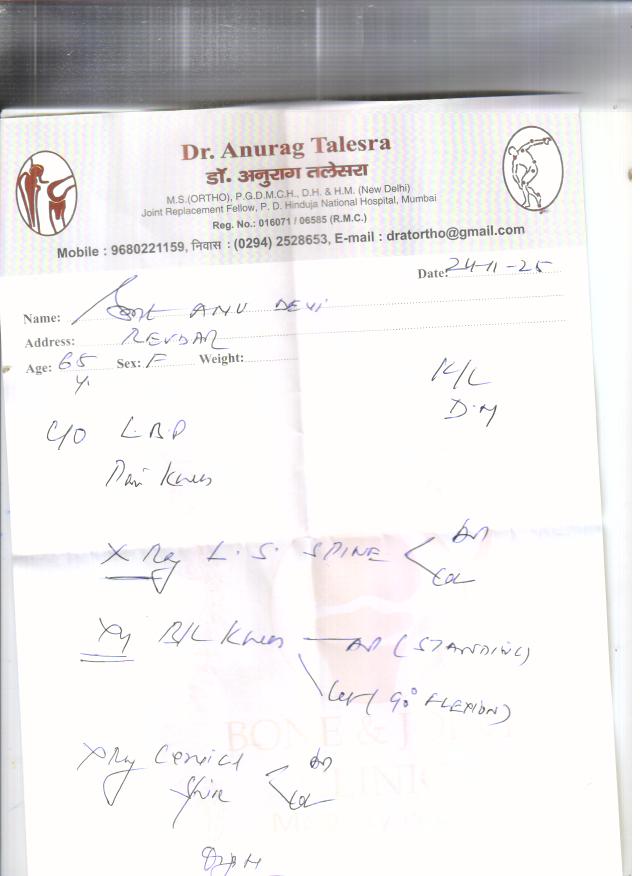 Dr. Anurag Talesra
डॉ. अनुराग तलेसरा
M.S.(ORTHO), P.G.D.M.C.H., D.H. & H.M. (New Delhi)
Joint Replacement Fellow, P. D. Hinduja National Hospital, Mumbai
Reg. No.: 016071 / 06585 (R.M.C.)
Mobile : 9680221159, निवास : (0294) 2528653, E-mail : dratortho@gmail.com
Date: 24-11-25
Name: ANU DEVI
Address: REVDAR
Age: 65 y. Sex: F Weight:
K/C
D.M
C/O L.B.P
Pain Knees
X Ray L.S. SPINE AP
Lat
Xy B/L Knees AP (STANDING)
Lat (90° FLEXION)
X Ray Cervical AP
Spine Lat
BONE & J
LINIC